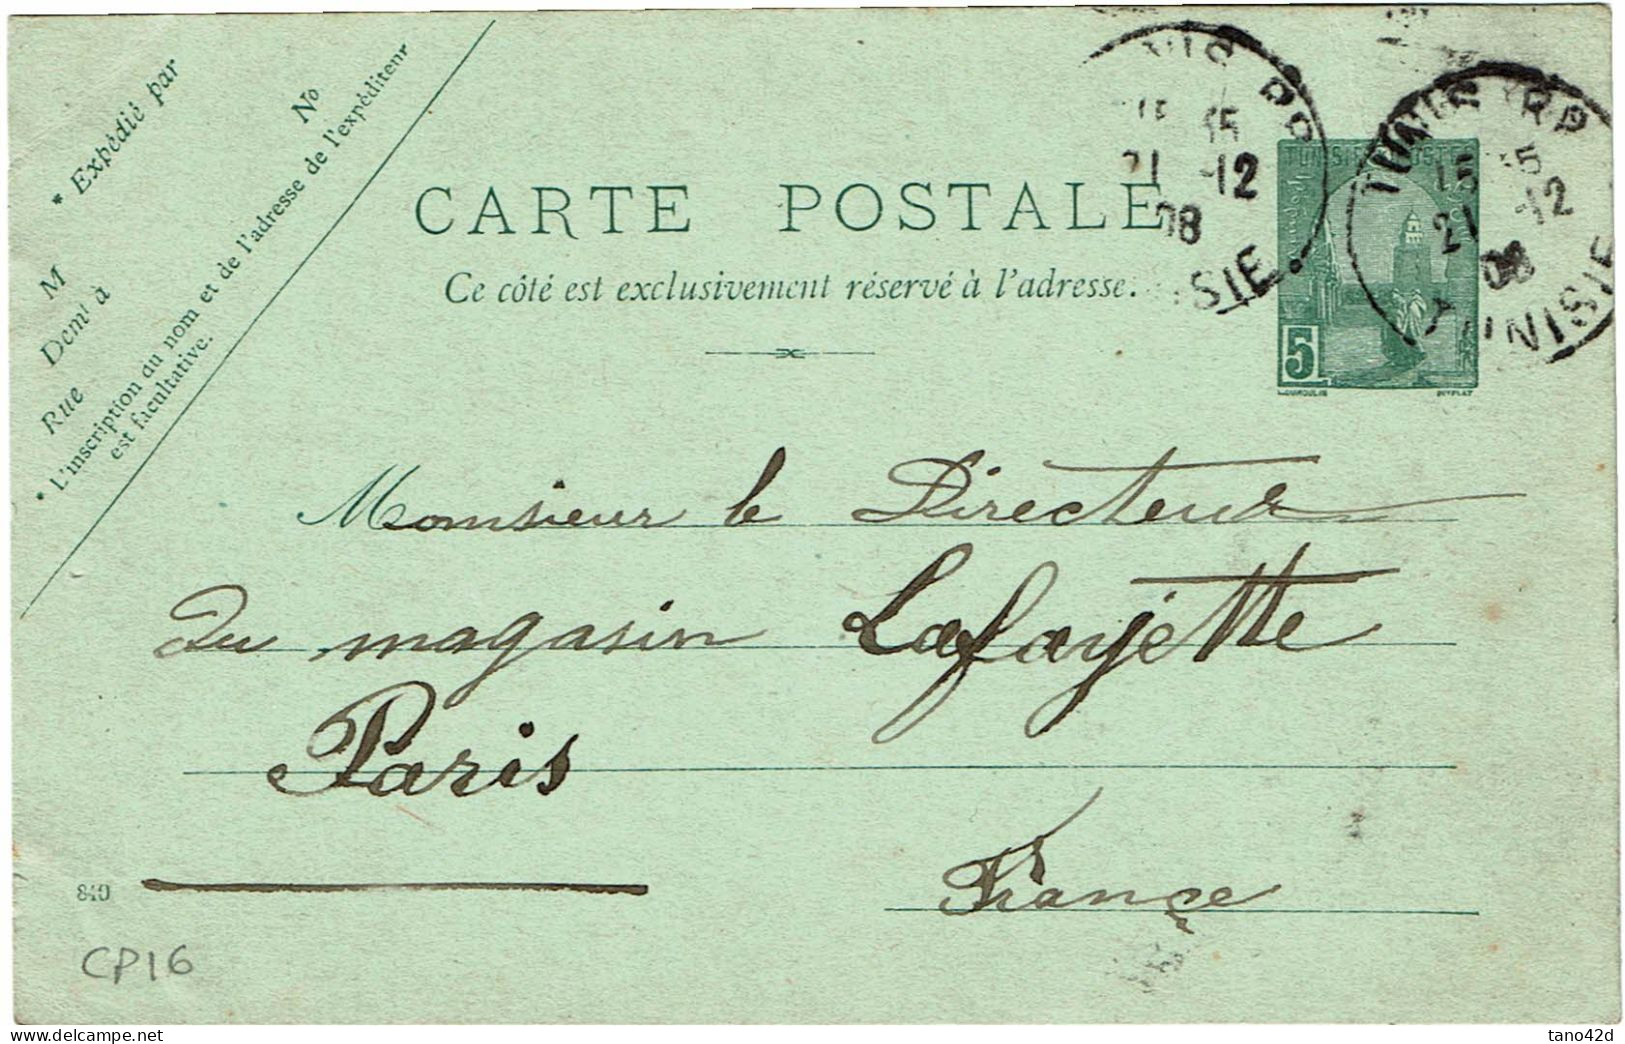 * Expédié par
M
Demt à
Rue
No
* L'inscription du nom et de l'adresse de l'expéditeur
est facultative.
CARTE POSTALE
Ce côté est exclusivement réservé à l'adresse.
TUNIS RP
15 15
21 -12
08
TUNISIE
TUNIS RP
15 15
21 -12
08
TUNISIE
TUNISIE POSTES
5
DUMOULIN
PUYPLAT
Monsieur le Directeur
Du magasin Lafayette
Paris
France
840
CP16
www.delcampe.net
tano42d